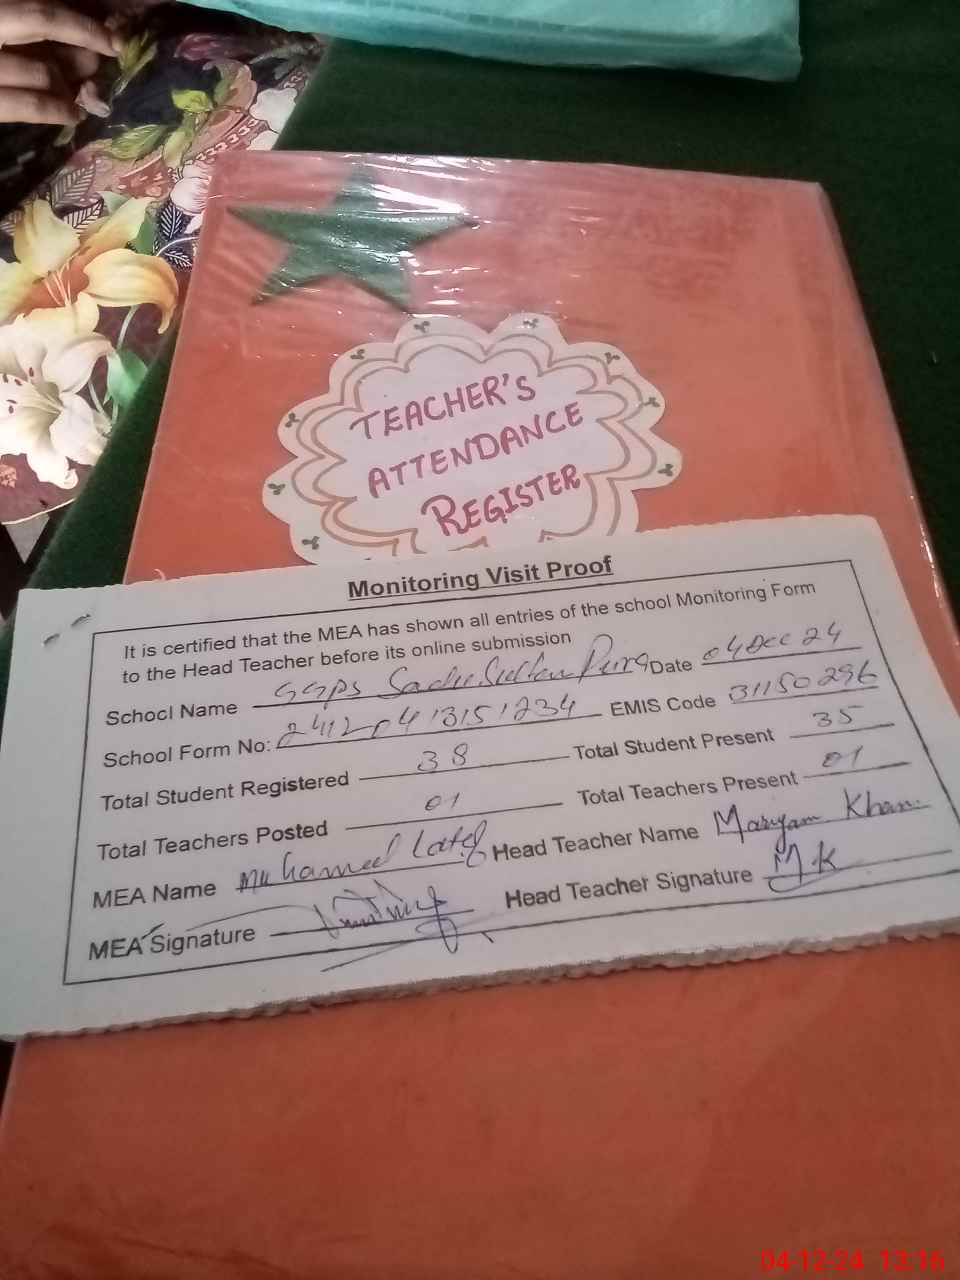 TEACHER'S
ATTENDANCE
REGISTER
Monitoring Visit Proof
It is certified that the MEA has shown all entries of the school Monitoring Form
to the Head Teacher before its online submission
School Name GGPS Sadu Sultan Pura Date 04 Dec 24
School Form No: 24120413151234 EMIS Code 31150296
Total Student Registered 38 Total Student Present 35
Total Teachers Posted 01 Total Teachers Present 01
MEA Name Muhameed Latef Head Teacher Name Maryam Khan
MEA Signature Head Teacher Signature MK
04-12-24 13:16